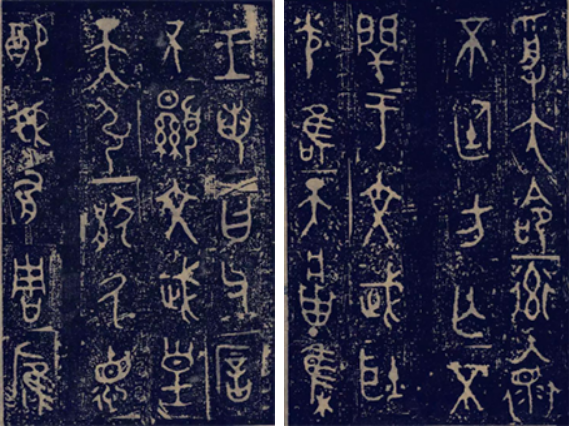 王若曰父㾓
不顯文武皇
天引厭氒德
配我有周膺
受大命率褱
不廷方亡不
閈于文武耿
光唯天將集